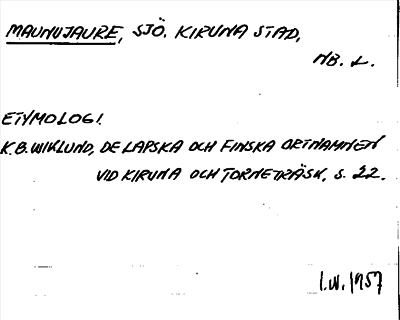 MAUNUJAURE, SJÖ. KIRUNA STAD,
NB. L.
ETYMOLOGI.
K.B. WIKLUND, DE LAPSKA OCH FINSKA ORTNAMNEN
VID KIRUNA OCH TORNETRÄSK, S. 22.
1957